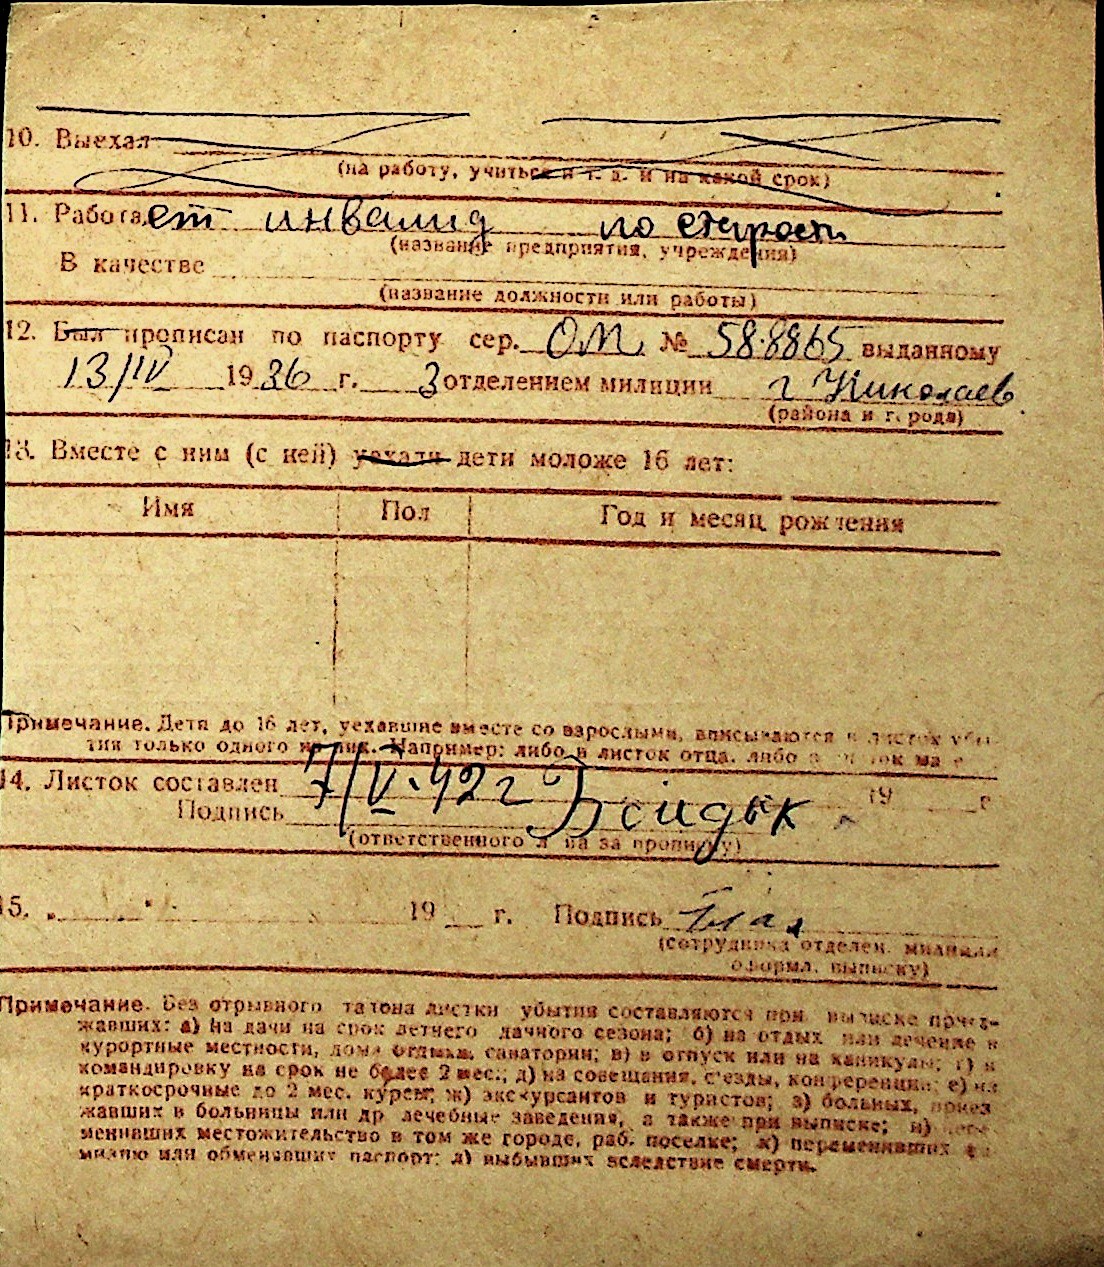 10. Выехал
(на работу, учиться и т. д. и на какой срок)
11. Работает инвалид по старости
(название предприятия, учреждения)
В качестве
(название должности или работы)
12. Был прописан по паспорту сер. ОМ № 588865 выданному
13/IV 1936 г. 3 отделением милиции г Николаев
(района и города)
13. Вместе с ним (с ней) уехали дети моложе 16 лет:
Имя Пол Год и месяц рождения
Примечание. Дети до 16 лет, уехавшие вместе со взрослыми, вписываются в листок убы-
тия только одного из них. Например: либо в листок отца, либо в листок ма
14. Листок составлен 7/V-42 г 19 г
Подпись
(ответственного лица за прописку)
15. „ “ 19 г. Подпись
(сотрудника отделен. милиции
оформл. выписку)
Примечание. Без отрывного талона листки убытия составляются при выписке приез-
жавших: а) на дачи на срок летнего дачного сезона; б) на отдых или лечение в
курортные местности, дома отдыха, санатории; в) в отпуск или на каникулы; г) в
командировку на срок не более 2 мес.; д) на совещания, съезды, конференции; е) на
краткосрочные до 2 мес. курсы; ж) экскурсантов и туристов; з) больных, приез
жавших в больницы или др лечебные заведения, а также при выписке; и) пере-
менивших местожительство в том же городе, раб. поселке; к) переменивших фа
милию или обменявших паспорт; л) выбывших вследствие смерти.